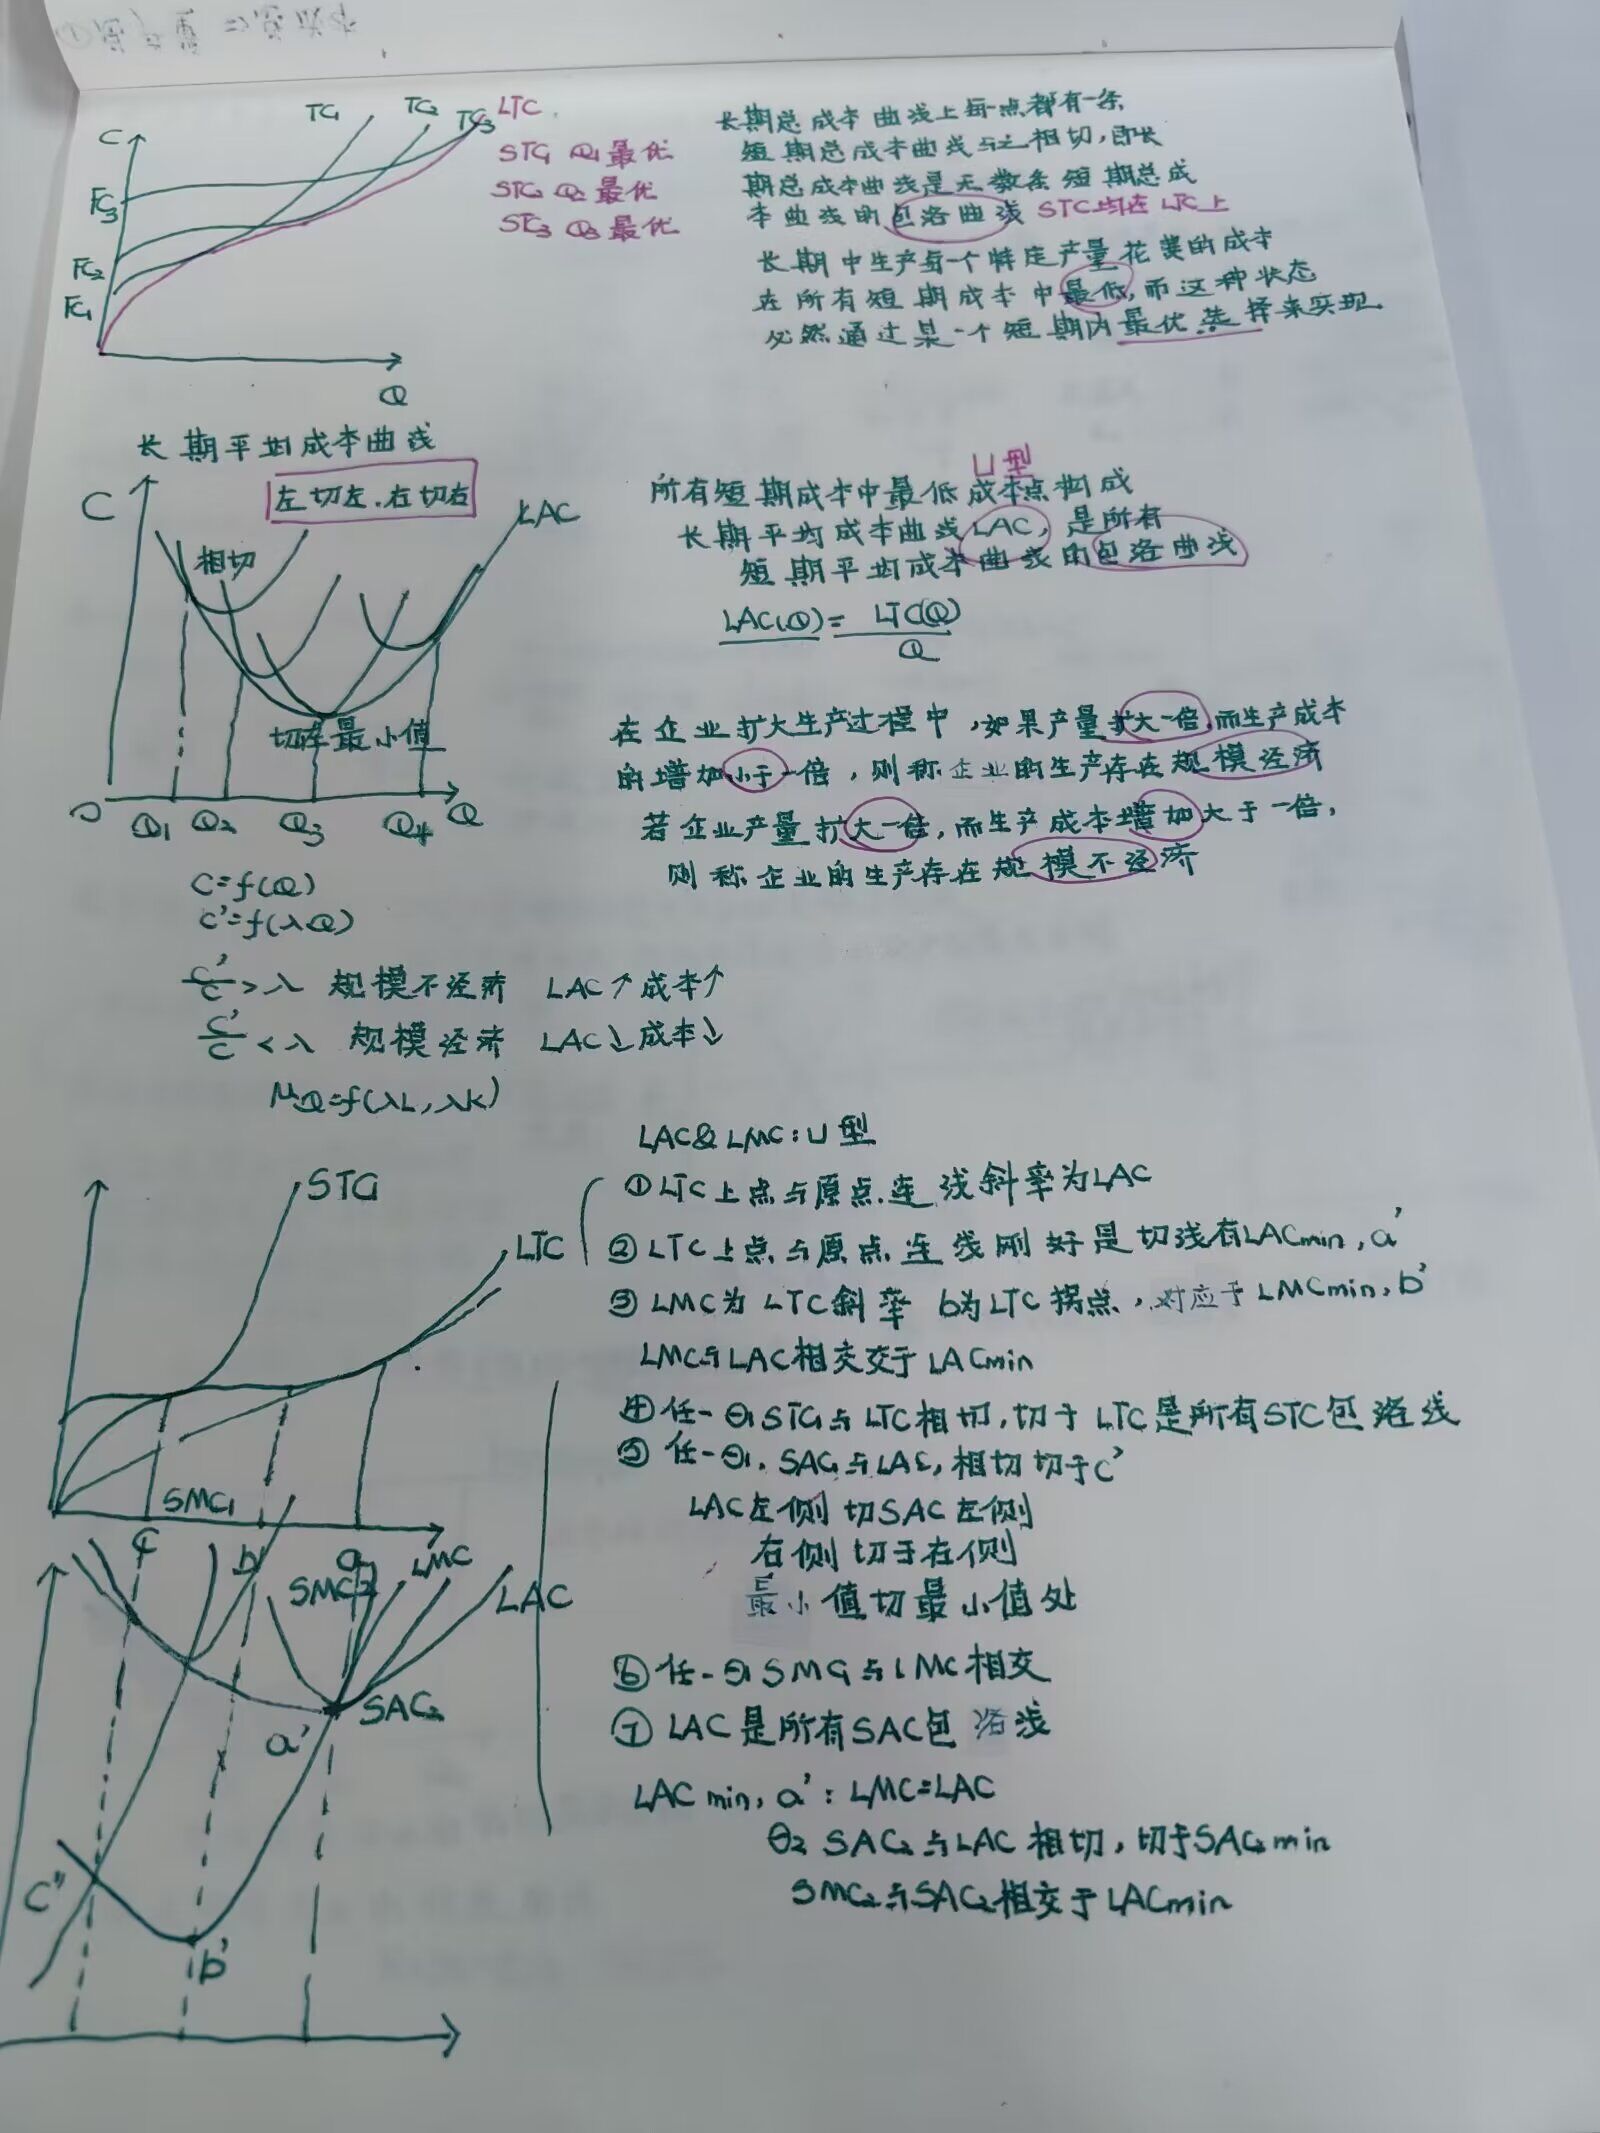 C
TC1
TC2
TC3
LTC
STC1 Q1最优
STC2 Q2最优
STC3 Q3最优
FC3
FC2
FC1
Q
长期总成本曲线上每一点都有一条
短期总成本曲线与之相切,即长
期总成本曲线是无数条短期总成
本曲线的包络曲线 STC均在LTC上
长期中生产每一个特定产量花费的成本
在所有短期成本中最低,而这种状态
必然通过某一个短期内最优选择来实现
长期平均成本曲线
左切左.右切右
C
LAC
相切
切在最小值
O Q1 Q2 Q3 Q4 Q
U型
所有短期成本中最低成本点构成
长期平均成本曲线LAC,是所有
短期平均成本曲线的包络曲线
LAC(Q)= LTC(Q)
Q
在企业扩大生产过程中,如果产量扩大一倍,而生产成本
的增加小于一倍,则称企业的生产存在规模经济
若企业产量扩大一倍,而生产成本增加大于一倍,
则称企业的生产存在规模不经济
C=f(Q)
C'=f(λQ)
C'/C>λ 规模不经济 LAC↑成本↑
C'/C<λ 规模经济 LAC↓成本↓
μQ=f(λL,λK)
STC1
LTC
SMC1
c
b
a
SMC2
LMC
LAC
SAC2
a'
c"
b'
LAC&LMC:U型
①LTC上点与原点.连线斜率为LAC
②LTC上点与原点连线刚好是切线有LACmin,a'
③LMC为LTC斜率 b为LTC拐点,对应于LMCmin,b'
LMC与LAC相交交于LACmin
④任一Q1STC1与LTC相切,切于LTC是所有STC包络线
⑤任一Q1.SAC1与LAC,相切切于c'
LAC左侧切SAC左侧
右侧切于右侧
最小值切最小值处
⑥任一Q1SMC1与LMC相交
⑦LAC是所有SAC包络线
LACmin,a':LMC=LAC
Q2 SAC2与LAC相切,切于SAC2min
SMC2与SAC2相交于LACmin